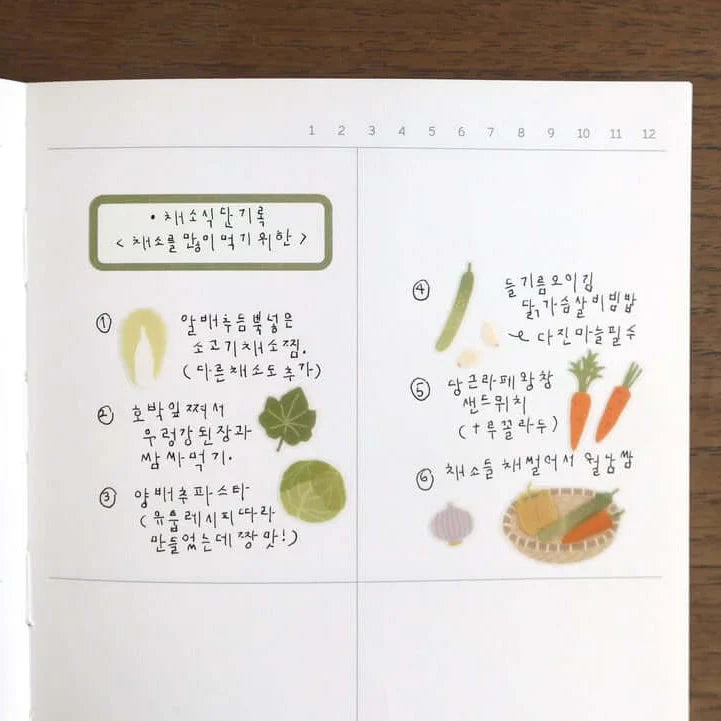 1 2 3 4 5 6 7 8 9 10 11 12
• 채소식단기록
< 채소를 많이 먹기 위한 >
① 알배추 듬뿍 넣은
소고기 채소찜.
(다른 채소도 추가)
② 호박잎 쪄서
우렁강된장과
쌈싸먹기.
③ 양배추파스타
(유튭레시피 따라
만들었는데 짱 맛!)
④ 들기름오이김
닭가슴살비빔밥
다진마늘필수
⑤ 당근라페왕창
샌드위치
(+루꼴라두)
⑥ 채소들 채썰어서 월남쌈